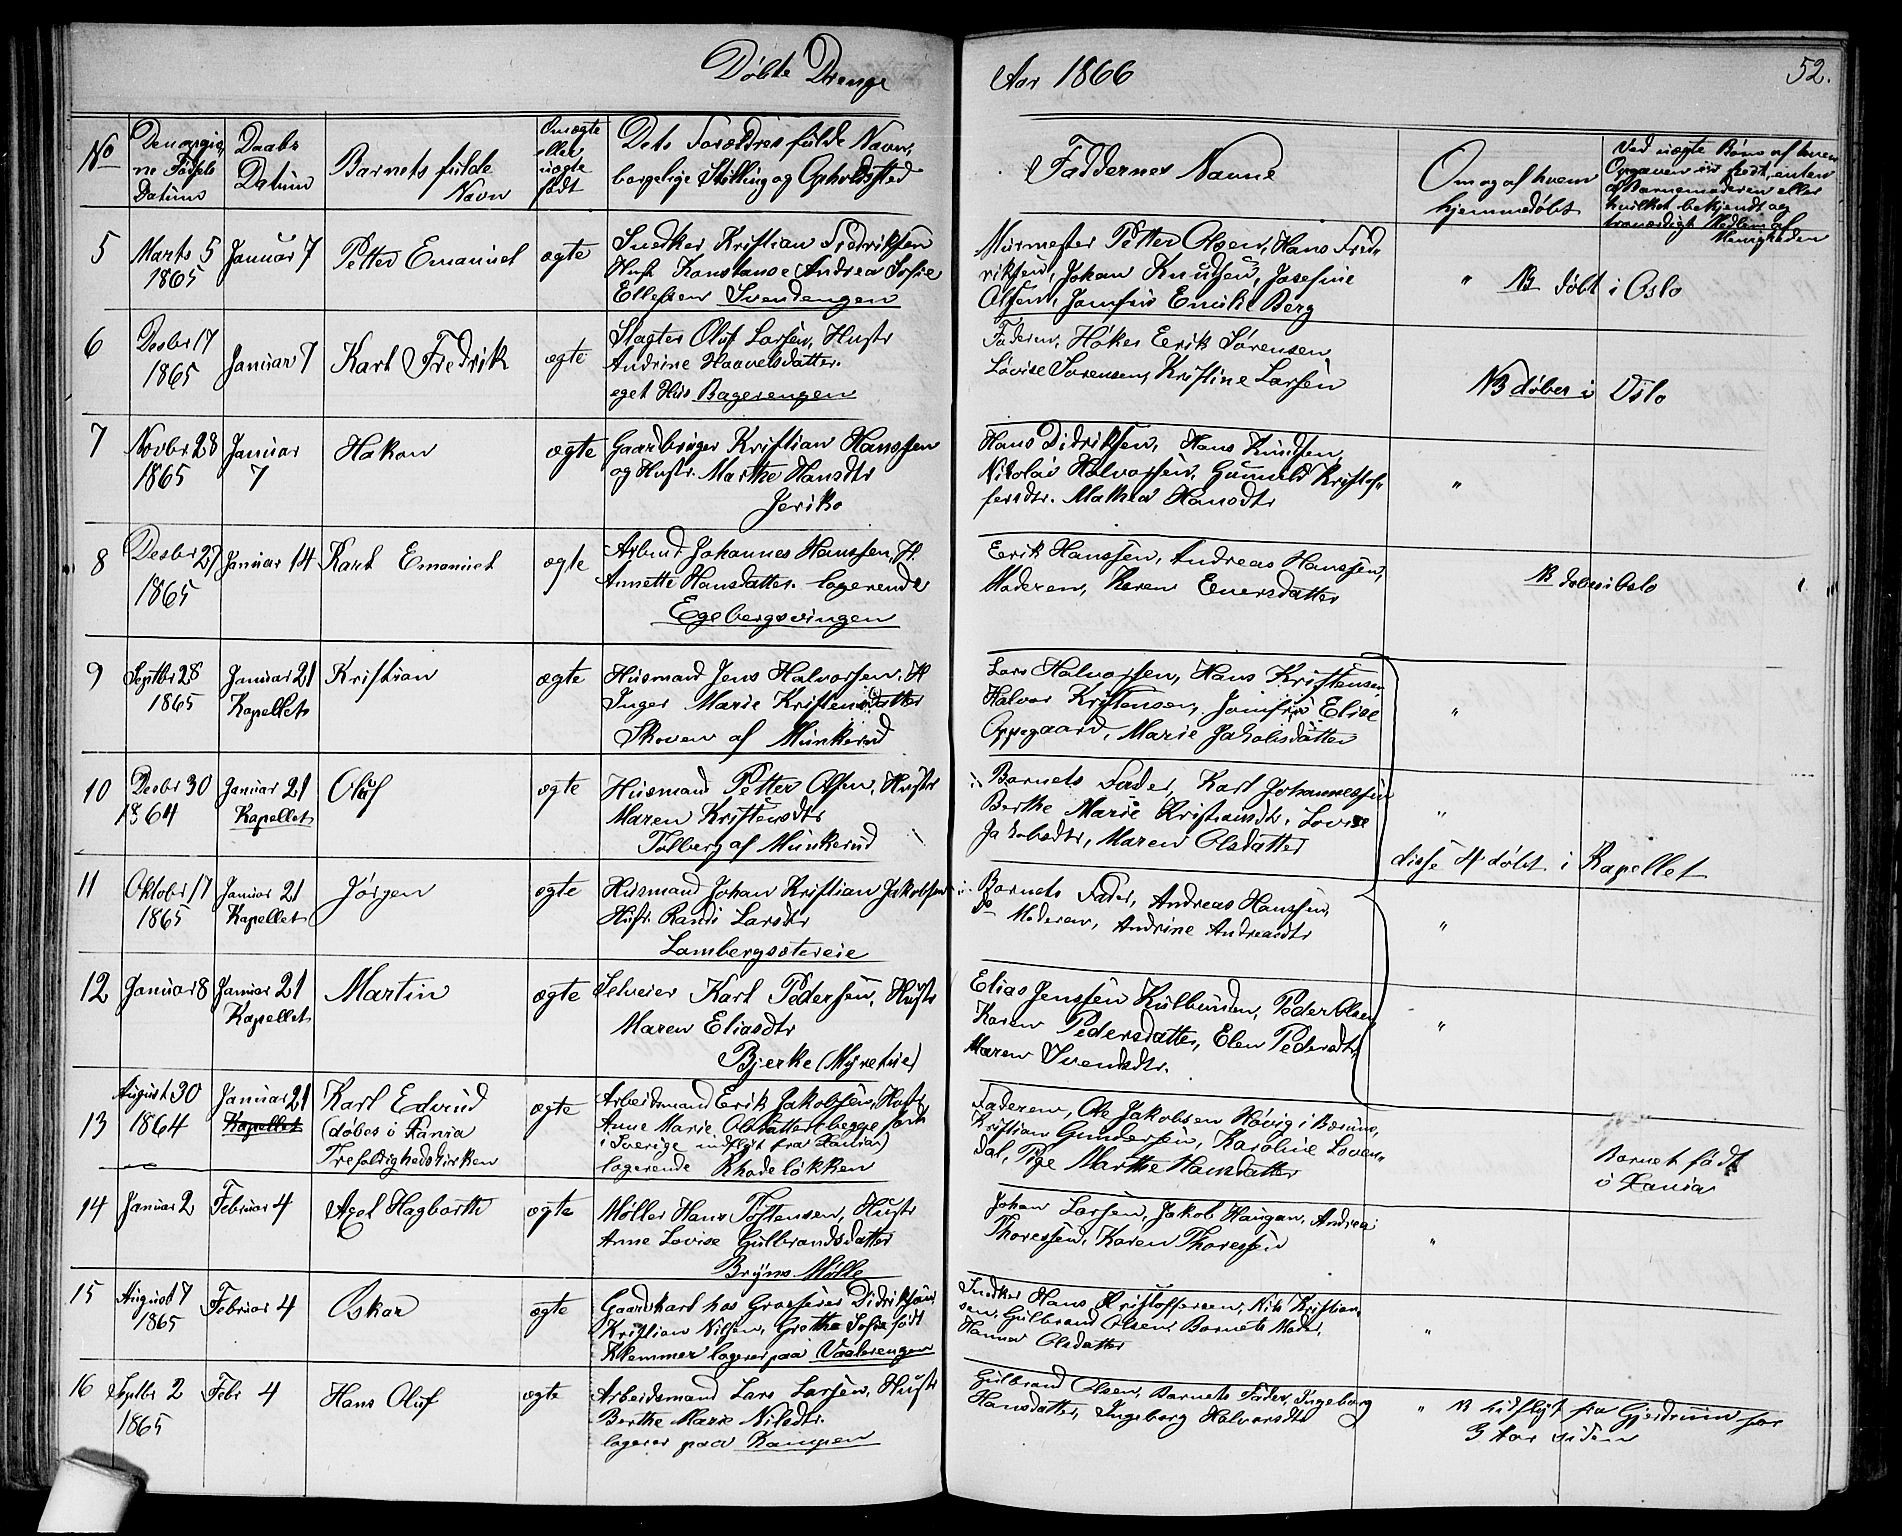 Döbte Drenge
Aar 1866
52.
No
Den opgivne Födsels Datum
Daabs Datum
Barnets fulde Navn
Om ægte eller uægte født
Dets Forældres fulde Navn, borgelige Stilling og Opholdsted
Faddernes Navne
Om og af hvem hjemmedöbt
Ved uægte Börn af hvem Opgaven er skedt, enten af Barnemoderen eller hvilket bekjendt og troværdigt Medlem af Menigheden
5
Marts 5
1865
Januar 7
Petter Emanuel
ægte
Snedker Kristian Fredriksen
Hust. Konstanse Andrea Sofie
Ellefsen Svendengen
Murmester Petter Olsen, Hans Fred-
riksen, Johan Knudsen, Josefine
Olsen, Jomfru Emilie Berg
" NB döbt i Oslo
6
Desbr 17
1865
Januar 7
Karl Fredrik
ægte
Slagter Oluf Larsen, Hustr
Andrine Haavelsdatter.
eget Hus Bagerengen
Faderen, Höker Eerik Sörensen,
Lovise Sorensen, Kristine Larsen
NB döber i Oslo
7
Novbr 28
1865
Januar
7
Hakon
ægte
Gaardbruger Kristian Hanssen
og Hustr. Marthe Hansdtr
Jeriko
Hans Didriksen, Hans Knudsen,
Nikolai Halvorsen, Gunnild Kristof-
fersdtr. Mathea Hansdtr
"
8
Desbr 27
1865
Januar 14
Karl Emanuel
ægte
Arbmd. Johannes Hanssen, H.
Annette Hansdatter. logerende
Egebergsvingen
Eerik Hanssen, Andreas Hanssen,
Moderen, Karen Eversdatter
NB döbes i Oslo
9
Septbr 28
1865
Januar 21
Kapellet
Kristian
ægte
Husmand Jens Halvorsen, H
Inger Marie Kristensdatter
Skoven af Munkerud
Lars Halvorsen, Hans Kristensen,
Halvor Kristensen, Jomfru Elise
Oppegaard, Marie Jakobsdatter
"
10
Desbr 30
1864
Januar 21
Kapellet
Oluf
ægte
Husmand Petter Olsen, Hustr
Maren Kristensdtr
Tolberg af Munkerud
Barnets Fader, Karl Johannessen
Berthe Marie Kristiansdtr, Lovise
Jakobsdtr, Maren Olsdatter
"
disse 4 döbt i Kapellet
11
Oktober 17
1865
Januar 21
Kapellet
Jörgen
ægte
Husmand Johan Kristian Jakobsen
Hustr. Randi Larsdtr
Lambergsætereie
Barnets Fader, Andreas Hanssen,
do Moderen, Andrine Andreasdtr
"
12
Januar 8
Januar 21
Kapellet
Martin
ægte
Selveier Karl Pedersen, Hustr
Maren Eliasdtr
Bjerke (Myretvie)
Elias Jenssen Kulbunden, Peder Olsen
Karen Pedersdatter, Elen Pedersdtr,
Maren Svendsdtr.
"
13
August 30
1864
Januar 21
Kapellet
Karl Edvard
(döbes i Xania
Trefoldighedskirken
ægte
Arbeidsmand Eerik Jakobsen, Hustr
Anne Marie Olsdatter (begge födt
i Sverige indflyt fra Xania)
logerende Rhodelökken
Faderen, Ole Jakobsen Hövig i Bærum,
Kristian Gundersen, Karoline Loven-
dal, Pige Marthe Hansdatter
Barnet födt
i Xania
14
Januar 2
Februar 4
Axel Hagbarth
ægte
Møller Hans Töstensen, Hustr
Anne Lovise Gulbrandsdatter
Bryns Mölle
Johan Larsen, Jakob Haugan, Andrea
Thoressen, Karen Thoressen
"
15
August 7
1865
Februar 4
Oskar
ægte
Gaardskarl hos Grosserer Didriksen
Kristian Nilsen, Grethe Sofie födt
Klemmer logerer paa Vaalerengen
Snedker Hans Kristoffersen, Nils Kristian-
sen, Gulbrand Olsen, Barnets Moder,
Hanna Olsdatter
"
16
Septbr 2
1865
Febr 4
Hans Oluf
ægte
Arbeidsmand Lars Larsen, Hustr
Berthe Marie Nilsdtr.
logerer paa Kampen
Gulbrand Olsen, Barnets Fader, Ingeborg
Hansdatter, Ingeborg Halvorsdtr
" NB tilflyt fra Gjerdrum for
3 Aar siden